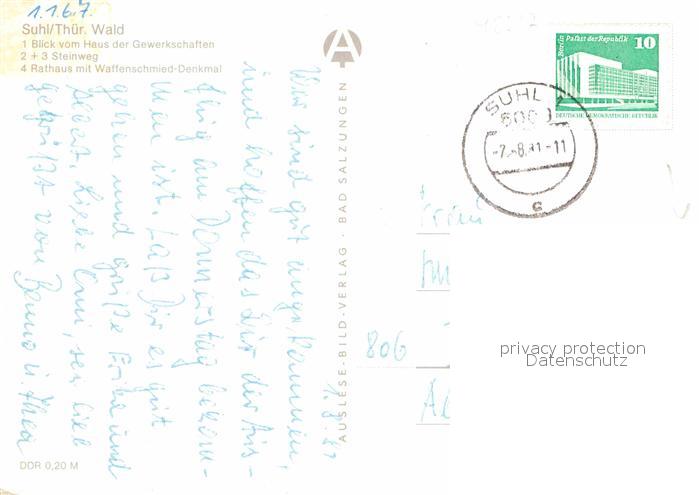 1.1.67
Suhl/Thür. Wald
1 Blick vom Haus der Gewerkschaften
2 + 3 Steinweg
4 Rathaus mit Waffenschmied-Denkmal
1.8.81
Wir sind gut angekommen,
und hoffen das Dir der Aus-
flug am Donnerstag bekom-
men ist. Laß Dir es gut
gehen und grüße Erika und
Albert. Liebe Omi, sei lieb
gegrüßt von Benno u. Thea
DDR 0,20 M
AUSLESE-BILD-VERLAG · BAD SALZUNGEN
Berlin Palast der Republik
10
DEUTSCHE DEMOKRATISCHE REPUBLIK
SUHL 1
6000
-7.-8.81-11
c
806
privacy protection
Datenschutz